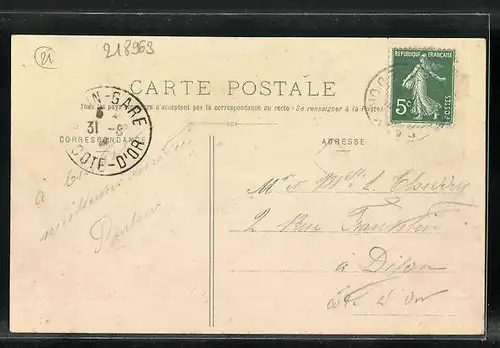 21
218963
CARTE POSTALE
Tous les pays étrangers n'acceptent pas la correspondance au recto (Se renseigner à la Poste)
CORRESPONDANCE
ADRESSE
N-GARE
31 -8
COTE-D'OR
REPUBLIQUE FRANÇAISE
5c
POSTES
à
meilleures
Mr et Melle L
2 Rue Franklin
à Dijon
Côte d'Or